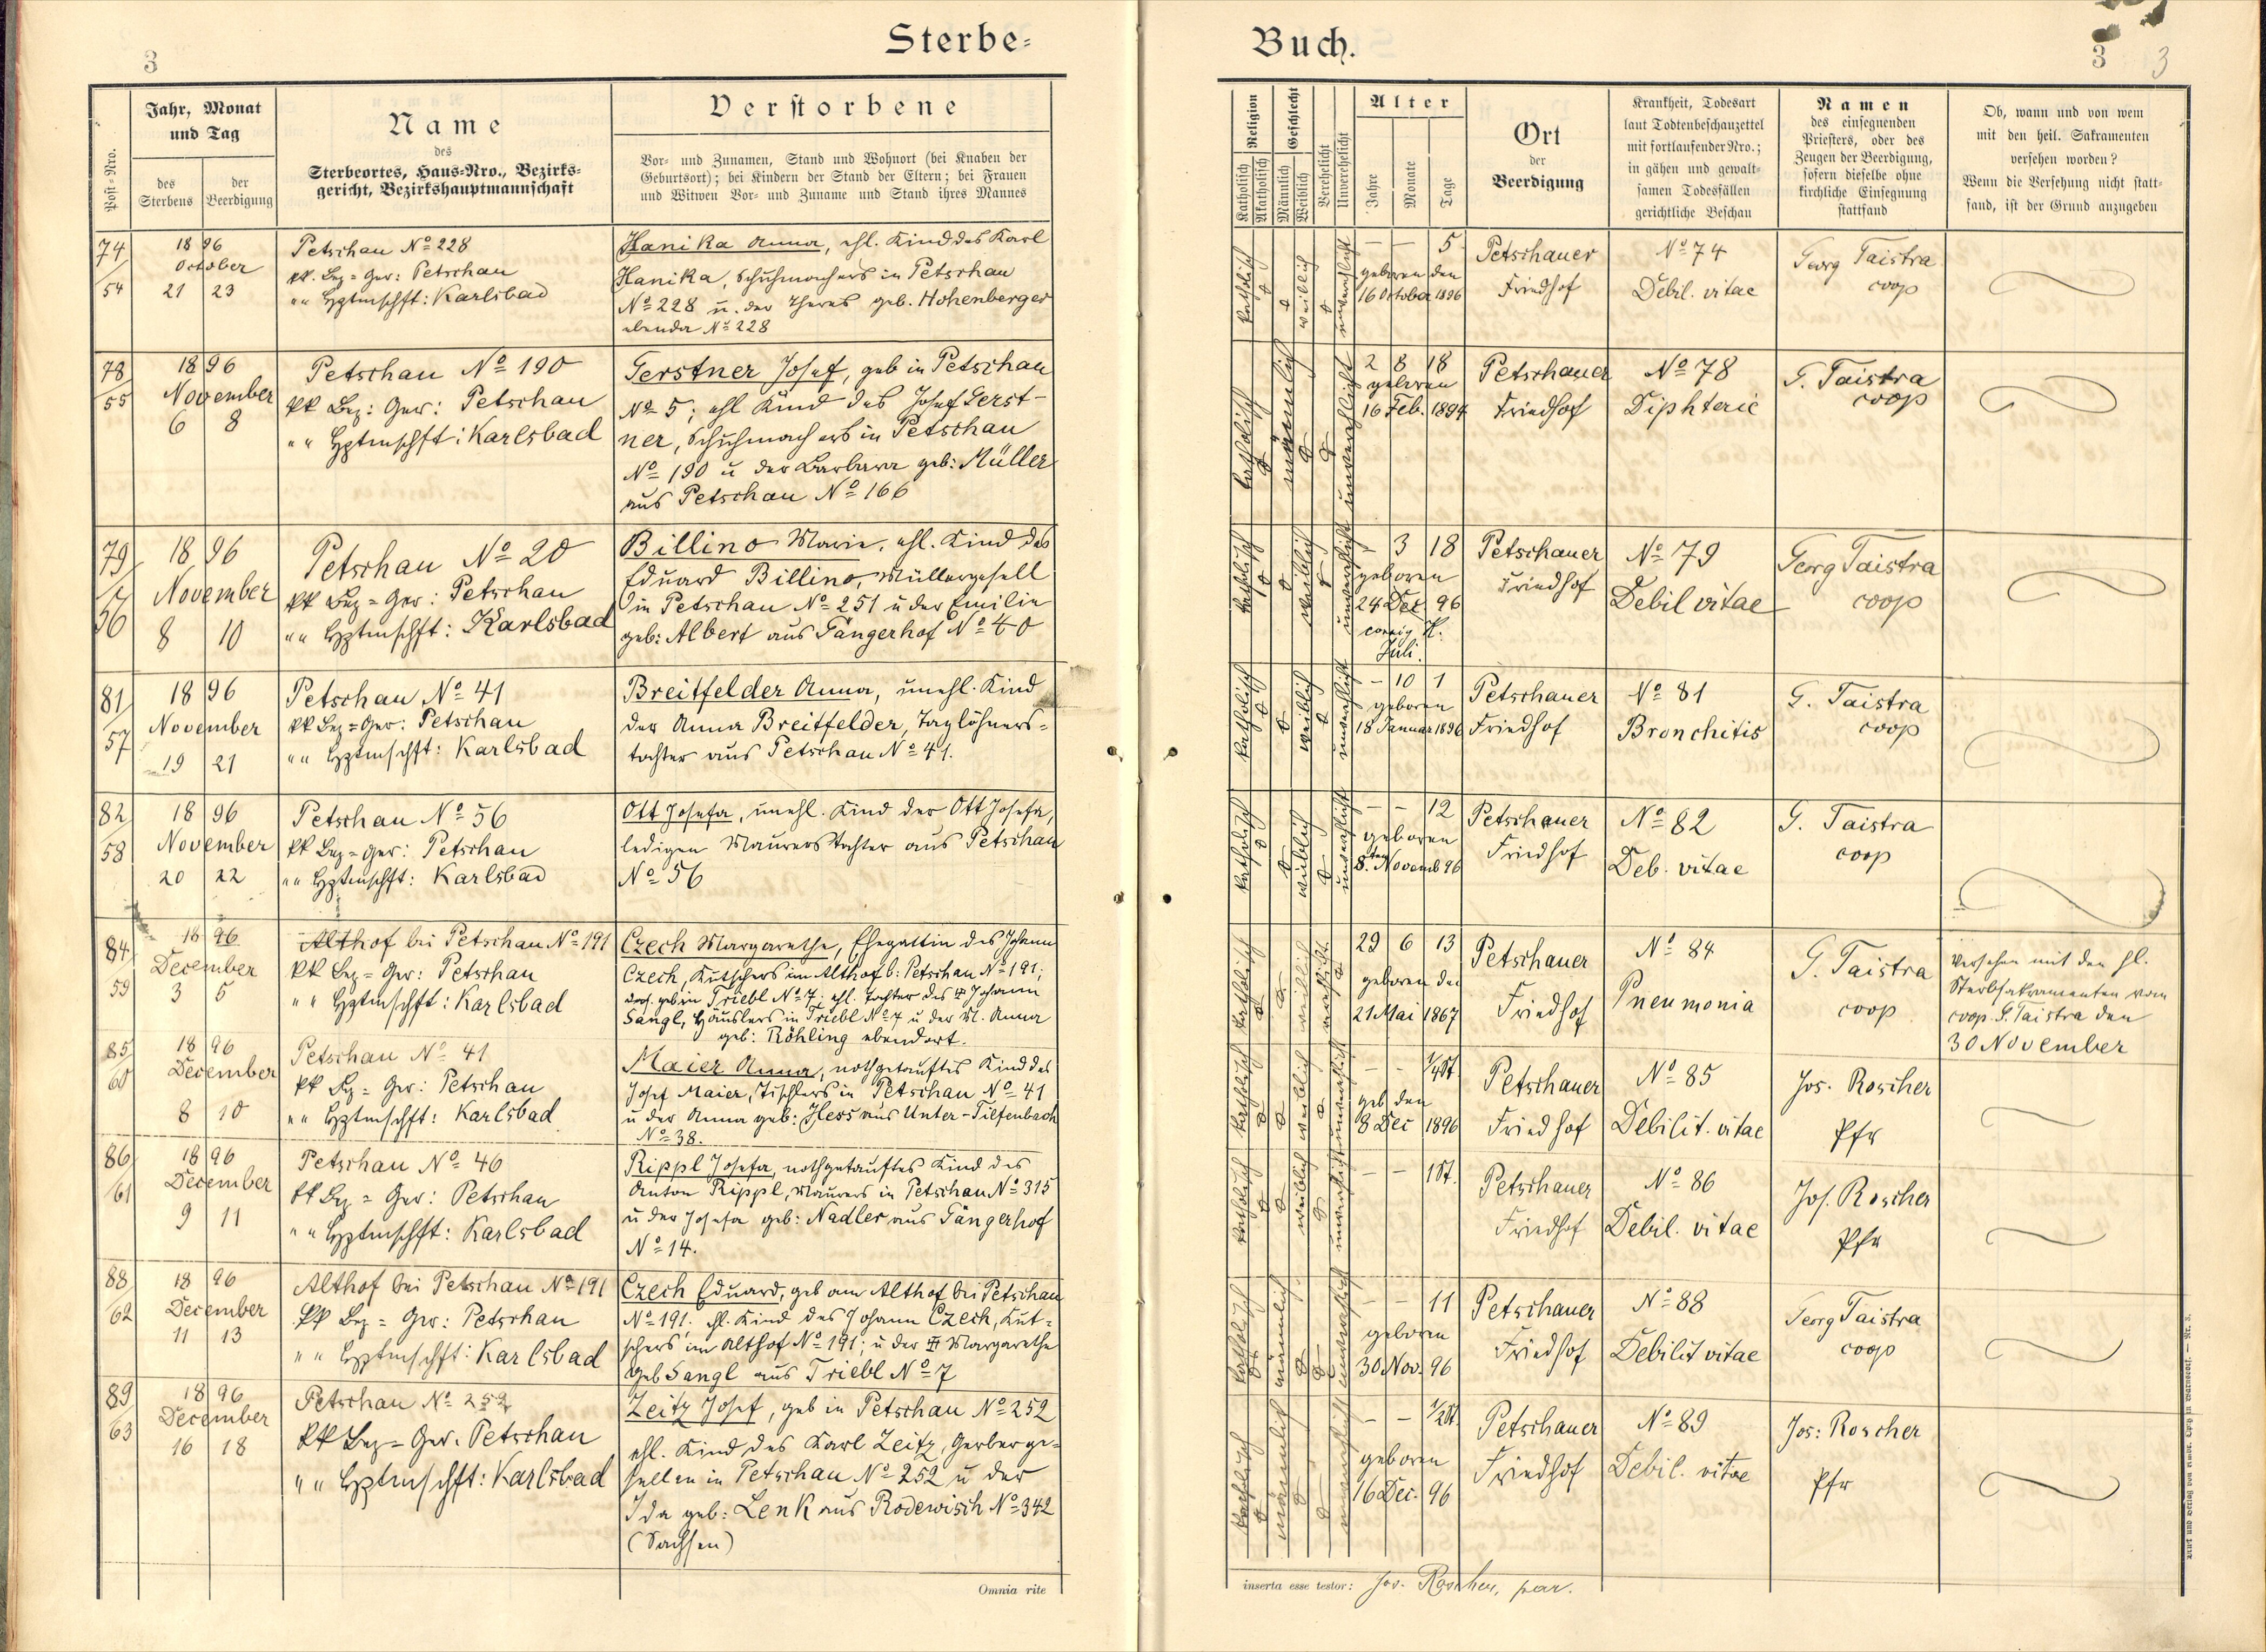 3
Sterbe-
Post-Nro.
Jahr, Monat
und Tag
des
Sterbens
der
Beerdigung
Name
des
Sterbeortes, Haus-Nro., Bezirks-
gericht, Bezirkshauptmannschaft
Verstorbene
Vor- und Zunamen, Stand und Wohnort (bei Knaben der
Geburtsort); bei Kindern der Stand der Eltern; bei Frauen
und Witwen Vor- und Zuname und Stand ihres Mannes
74/54
1896
October
21 23
Petschau No 228
kk. Bez = Ger: Petschau
"" Hptmschft: Karlsbad
Hanika Anna, ehl. Kind des Karl
Hanika, Schuhmachers in Petschau
No 228 u. der Theres geb. Hohenberger
ebenda No 228
78/55
1896
November
6 8
Petschau No 190
kk Bez: Ger: Petschau
"" Hptmschft: Karlsbad
Gerstner Josef, geb in Petschau
No 5; ehl Kind des Josef Gerst-
ner, Schuhmachers in Petschau
No 190 u der Barbara geb: Müller
aus Petschau No 166
79/56
1896
November
8 10
Petschau No 20
kk Bez = Ger: Petschau
"" Hptmschft: Karlsbad
Billino Marie, ehl. Kind des
Eduard Billino, Müllergesell
in Petschau No 251 u der Emilie
geb: Albert aus Gängerhof No 40
81/57
1896
November
19 21
Petschau No 41
kk Bez = Ger: Petschau
"" Hptmschft: Karlsbad
Breitfelder Anna, unehl. Kind
der Anna Breitfelder, Taglöhners-
tochter aus Petschau No 41.
82/58
1896
November
20 22
Petschau No 56
kk Bez = Ger: Petschau
"" Hptmschft: Karlsbad
Ott Josefa, unehl. Kind der Ott Josefa,
ledigen Maurers tochter aus Petschau
No 56
84/59
1896
December
3 5
Althof bei Petschau No 191
kk Bez = Ger: Petschau
"" Hptmschft: Karlsbad
Czech Margarethe, Ehegattin des Johann
Czech, Kutschers im Althof b: Petschau No 191;
geb in Triebl No 7; ehl. Tochter des Johann
Sangl, Häuslers in Triebl No 7 u der M. Anna
geb: Röhling ebendort.
85/60
1896
December
8 10
Petschau No 41
kk Bz = Ger: Petschau
"" Hptmschft: Karlsbad
Maier Anna, nothgetauftes Kind des
Josef Maier, Tischlers in Petschau No 41
u der Anna geb: Hess aus Unter-Tiefenbach
No 38.
86/61
1896
December
9 11
Petschau No 46
kk Bez = Ger: Petschau
"" Hptmschft: Karlsbad
Rippl Josefa, nothgetauftes Kind des
Anton Rippl, Maurers in Petschau No 315
u der Josefa geb: Nadler aus Gängerhof
No 14.
88/62
1896
December
11 13
Althof bei Petschau No 191
kk Bez = Ger: Petschau
"" Hptmschft: Karlsbad
Czech Eduard, geb am Althof bei Petschau
No 191. ehl. Kind des Johann Czech, Kut-
schers im Althof No 191; u der Margarethe
geb Sangl aus Triebl No 7
89/63
1896
December
16 18
Petschau No 252
kk Bez = Ger. Petschau
"" Hptmschft: Karlsbad
Zeitz Josef, geb in Petschau No 252
ehl. Kind des Karl Zeitz, Gerberge-
sellen in Petschau No 252 u der
Ida geb: Lenk aus Rodewisch No 342
(Sachsen)
Omnia rite
Buch.
3 3
Religion
Katholisch
Akatholisch
Geschlecht
Männlich
Weiblich
Verehelicht
Unverehelicht
Alter
Jahre
Monate
Tage
Ort
der
Beerdigung
Krankheit, Todesart
laut Todtenbeschauzettel
mit fortlaufender Nro.;
in gähen und gewalt-
samen Todesfällen
gerichtliche Beschau
Namen
des einsegnenden
Priesters, oder des
Zeugen der Beerdigung,
sofern dieselbe ohne
kirchliche Einsegnung
stattfand
Ob, wann und von wem
mit den heil. Sakramenten
versehen worden?
Wenn die Versehung nicht statt-
fand, ist der Grund anzugeben
katholisch
weiblich
unverehelicht
— — 5
geboren den
16 October 1896
Petschauer
Friedhof
No 74
Debil. vitae
Georg Taistra
coop
katholisch
männlich
unverehelicht
2 8 18
geboren
16 Feb. 1894
Petschauer
Friedhof
No 78
Diphterie
G. Taistra
coop
katholisch
weiblich
unverehelicht
— 3 18
geboren
24 Dez 96
corrig
Juli.
Petschauer
Friedhof
No 79
Debil vitae
Georg Taistra
coop
katholisch
weiblich
unverehelicht
— 10 1
geboren
18 Januar 1896
Petschauer
Friedhof
No 81
Bronchitis
G. Taistra
coop
katholisch
weiblich
unverehelicht
— — 12
geboren
8.ten Novemb 96
Petschauer
Friedhof
No 82
Deb. vitae
G. Taistra
coop
katholisch
weiblich
verehelicht
29 6 13
geboren den
21 Mai 1867
Petschauer
Friedhof
No 84
Pneumonia
G. Taistra
coop
Versehen mit den hl.
Sterbsakramenten vom
coop. G. Taistra den
30 November
katholisch
weiblich
unverehelicht
— — 1/4 St.
geb den
8 Dec 1896
Petschauer
Friedhof
No 85
Debilit. vitae
Jos. Roscher
Pfr
katholisch
weiblich
unverehelicht
— — 1 St.
Petschauer
Friedhof
No 86
Debil. vitae
Jos. Roscher
Pfr
katholisch
männlich
unverehelicht
— — 11
geboren
30 Nov. 96
Petschauer
Friedhof
No 88
Debilit vitae
Georg Taistra
coop
katholisch
männlich
unverehelicht
— — 1/2 St.
geboren
16 Dec. 96
Petschauer
Friedhof
No 89
Debil. vitae
Jos: Roscher
Pfr
inserta esse testor: Jos. Roscher, par.